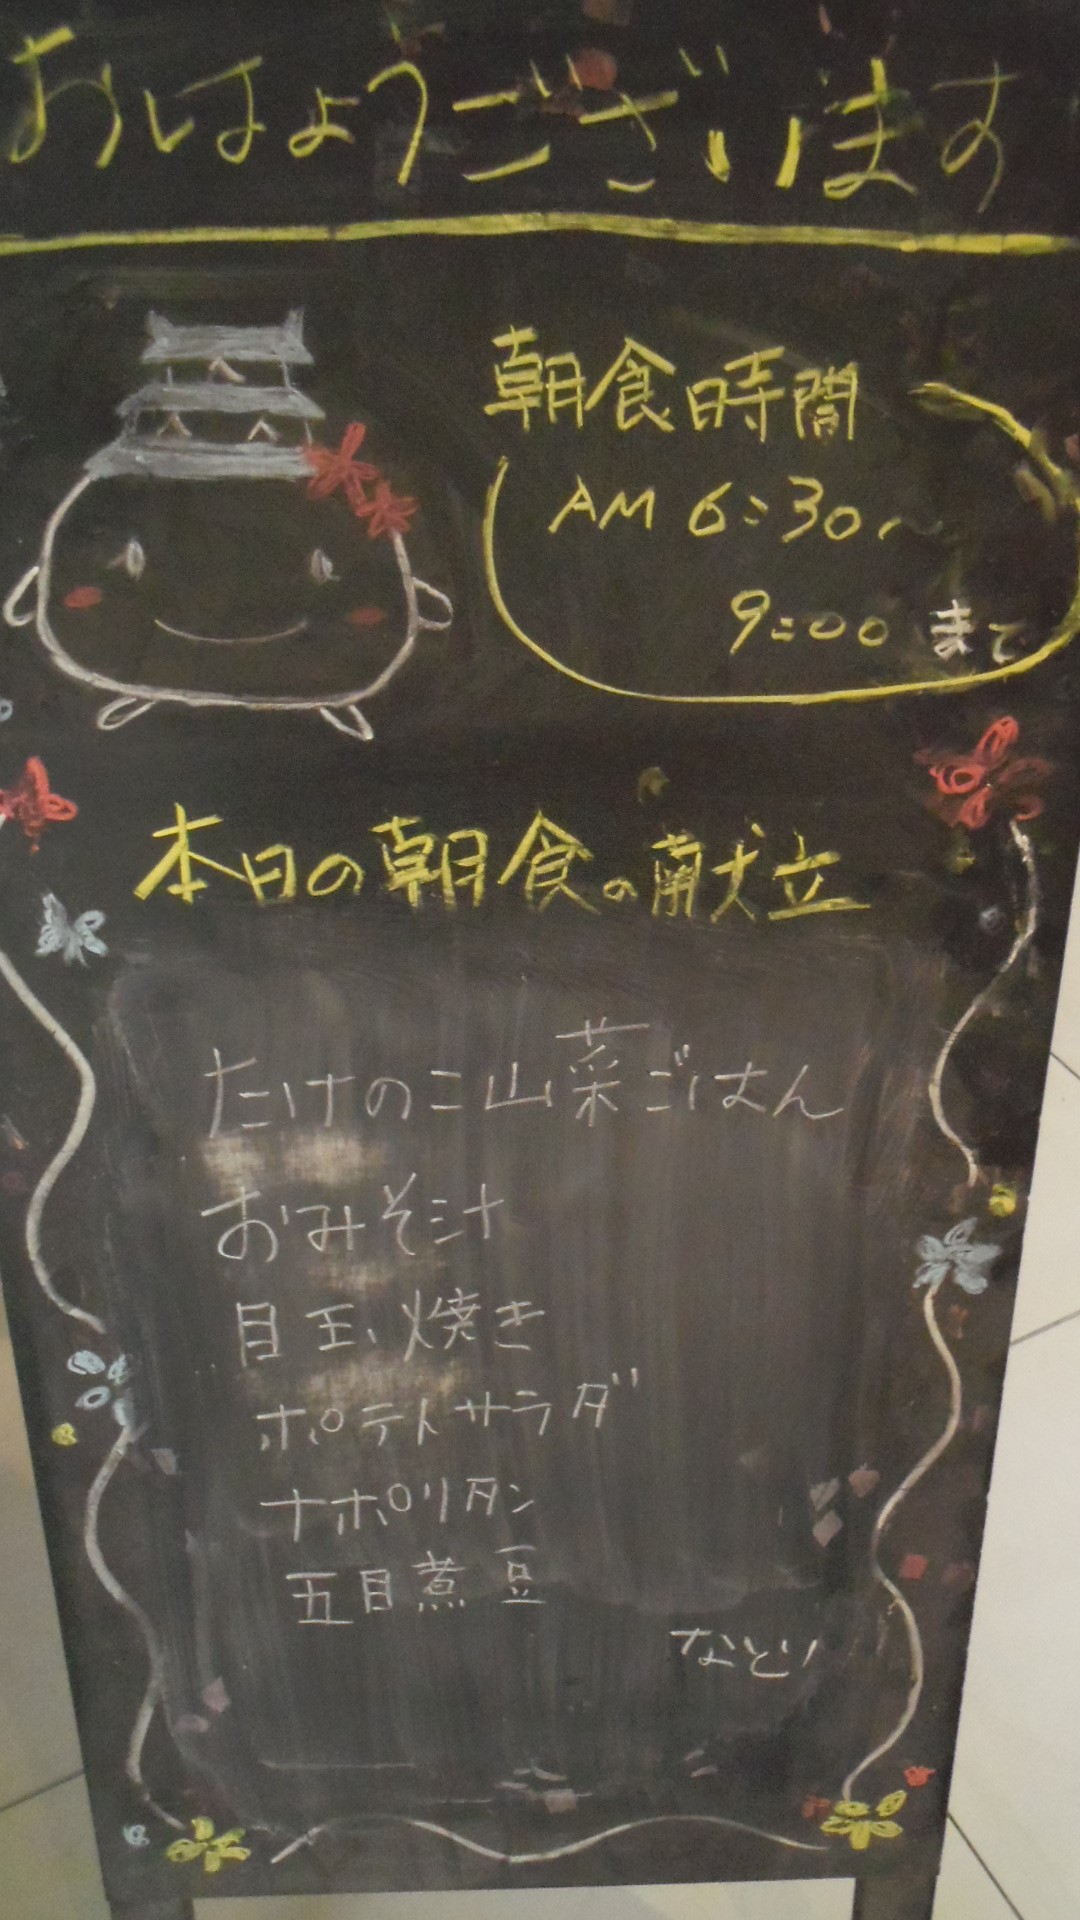 おはようございます
朝食時間
AM 6:30～
9:00 まで
本日の朝食の献立
たけのこ山菜ごはん
おみそ汁
目玉焼き
ポテトサラダ
ナポリタン
五目煮豆
など